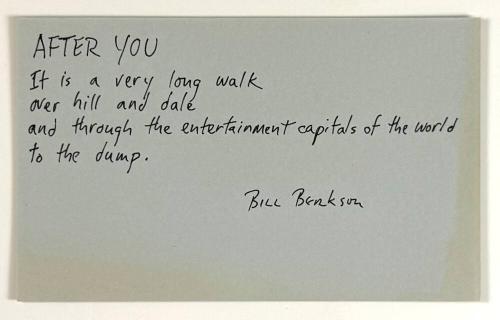 AFTER YOU
It is a very long walk
over hill and dale
and through the entertainment capitals of the world
to the dump.
Bill Berkson